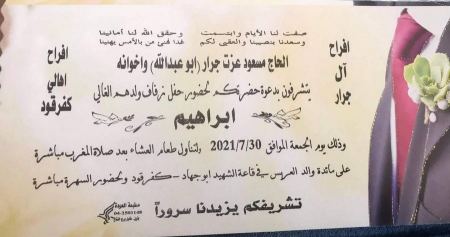 صفت لنا الأيام وابتسمت وحقق الله لنا أمانينا
وسعدنا بنصيبنا والعقبى لكم غدا فنى من بالأمس يهنينا
افراح
آل
جرار
الحاج مسعود عزت جرار (ابو عبدالله) واخوانه
يتشرفون بدعوة حضرتكم لحضور حفل زفاف ولدهم الغالي
ابراهيم
افراح
اهالي
كفرقود
وذلك يوم الجمعة الموافق 2021/7/30 ولتناول طعام العشاء بعد صلاة المغرب مباشرة
على مائدة والد العريس في قاعة الشهيد ابو جهاد - كفرقود ولحضور السهرة مباشرة
تشريفكم يزيدنا سروراً
مطبعة العودة
04-2503148